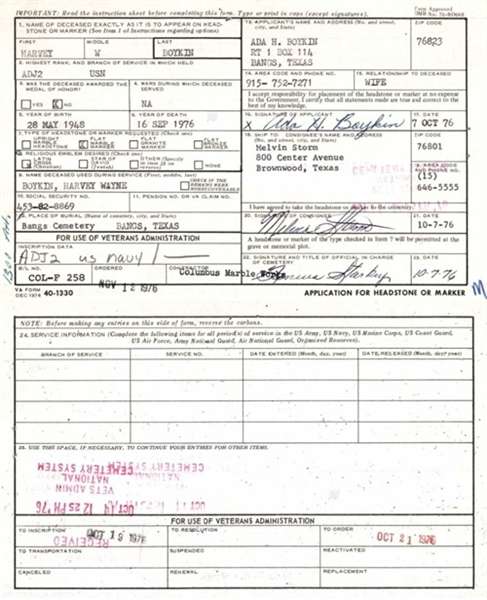 IMPORTANT: Read the instruction sheet before completing this form. Type or print in copies (except signatures).
Form Approved
1. NAME OF DECEASED EXACTLY AS IT IS TO APPEAR ON HEAD-
STONE OR MARKER (See Item 1 of Instructions regarding options)
FIRST MIDDLE LAST
HARVEY W BOYKIN
2. HIGHEST RANK, AND BRANCH OF SERVICE IN WHICH HELD
ADJ2 USN
3. WAS THE DECEASED AWARDED THE MEDAL OF HONOR?
YES X NO
4. WARS DURING WHICH SERVED
NA
5. YEAR OF BIRTH
28 MAY 1948
6. YEAR OF DEATH
16 SEP 1976
7. TYPE OF HEADSTONE OR MARKER REQUESTED (Check one)
UPRIGHT MARBLE HEADSTONE
FLAT MARBLE MARKER
FLAT GRANITE MARKER
FLAT BRONZE MARKER
8. RELIGIOUS EMBLEM DESIRED (Check one)
LATIN CROSS (Christian)
STAR OF DAVID
NONE
9. NAME DECEASED USED DURING SERVICE (First, middle, last)
BOYKIN, HARVEY WAYNE
10. SOCIAL SECURITY NO.
453-82-8869
11. PENSION NO. OR VA CLAIM NO.
12. PLACE OF BURIAL (Name of cemetery, city, and State)
Bangs Cemetery BANGS, TEXAS
FOR USE OF VETERANS ADMINISTRATION
INSCRIPTION DATA
ADJ2 US NAVY
B/L NO.
COL-F 258
ORDERED
NOV 12 1976
CONTRACTOR
Columbus Marble Works
VA FORM
DEC 1974 40-1330
13. APPLICANT'S NAME AND ADDRESS (No. and street, city, and State)
ZIP CODE
ADA H. BOYKIN
RT 1 BOX 114
BANGS, TEXAS
76823
14. AREA CODE AND PHONE NO.
915- 752-7271
15. RELATIONSHIP TO DECEASED
WIFE
I accept responsibility for placement of the headstone or marker at no expense to the Government. I certify that all statements made are true and correct to the best of my knowledge.
16. SIGNATURE OF APPLICANT
X Ada H. Boykin
17. DATE
7 OCT 76
18. SHIP TO: CONSIGNEE'S NAME AND ADDRESS (No. and street, city, and State)
ZIP CODE
Melvin Storm
800 Center Avenue
Brownwood, Texas
76801
19. AREA CODE AND PHONE NO.
(15)
646-5555
I have agreed to take the headstone or marker to the cemetery.
20. SIGNATURE OF CONSIGNEE
Melvin Storm
21. DATE
10-7-76
A headstone or marker of the type checked in Item 7 will be permitted at the grave or memorial plot.
22. SIGNATURE AND TITLE OF OFFICIAL IN CHARGE OF CEMETERY
23. DATE
10-7-76
APPLICATION FOR HEADSTONE OR MARKER
M
NOTE: Before making any entries on this side of form, reverse the carbons.
24. SERVICE INFORMATION (Complete the following items for all period(s) of service in the US Army, US Navy, US Marine Corps, US Coast Guard, US Air Force, Army National Guard, Air National Guard, Organized Reserves).
BRANCH OF SERVICE
SERVICE NO.
DATE ENTERED (Month, day, year)
DATE RELEASED (Month, day, year)
25. USE THIS SPACE, IF NECESSARY, TO CONTINUE YOUR ENTRIES FOR OTHER ITEMS.
OCT 14 12 25 PM '76
VETS ADMIN
NATIONAL
CEMETERY SYSTEM
FOR USE OF VETERANS ADMINISTRATION
TO INSCRIPTION
OCT 19 1976
RECEIVED
TO RESOLUTION
TO ORDER
OCT 21 1976
TO TRANSPORTATION
SUSPENDED
REACTIVATED
CANCELED
RENEWAL
REPLACEMENT